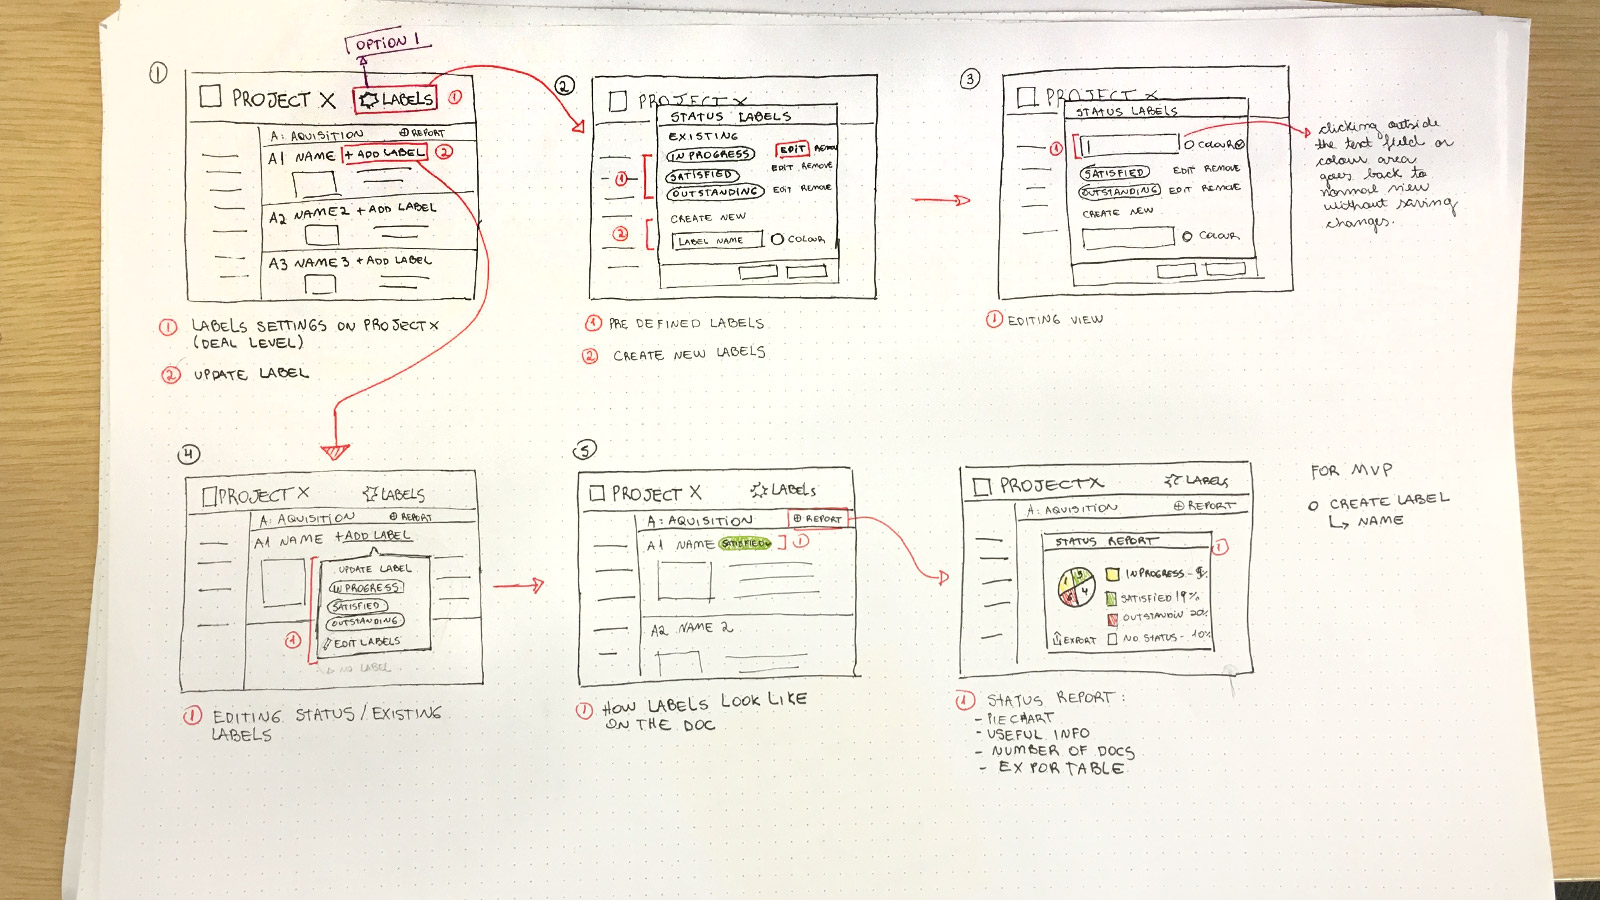 OPTION 1
1
PROJECT X
LABELS
1
A: AQUISITION
REPORT
A1 NAME
+ ADD LABEL
2
A2 NAME 2 + ADD LABEL
A3 NAME 3 + ADD LABEL
1 LABELS SETTINGS ON PROJECT X
(DEAL LEVEL)
2 UPDATE LABEL
2
PROJECT X
STATUS LABELS
EXISTING
IN PROGRESS EDIT REMOVE
SATISFIED EDIT REMOVE
1
OUTSTANDING EDIT REMOVE
CREATE NEW
2
LABEL NAME COLOUR
1 PRE DEFINED LABELS
2 CREATE NEW LABELS
3
PROJECT X
STATUS LABELS
1
COLOUR
SATISFIED EDIT REMOVE
OUTSTANDING EDIT REMOVE
CREATE NEW
COLOUR
1 EDITING VIEW
clicking outside
the text field or
colour area
goes back to
normal view
without saving
changes.
4
PROJECT X
LABELS
A: AQUISITION
REPORT
A1 NAME + ADD LABEL
UPDATE LABEL
IN PROGRESS
SATISFIED
OUTSTANDING
1
EDIT LABELS
NO LABEL
1 EDITING STATUS/EXISTING
LABELS
5
PROJECT X
LABELS
A: AQUISITION
REPORT
A1 NAME SATISFIED
1
A2 NAME 2
1 HOW LABELS LOOK LIKE
ON THE DOC
PROJECT X
LABELS
A: AQUISITION
REPORT
STATUS REPORT
1
IN PROGRESS -
SATISFIED 19%
OUTSTANDIN 20%
EXPORT
NO STATUS - 10%
1 STATUS REPORT:
- PIECHART
- USEFUL INFO
- NUMBER OF DOCS
- EXPORTABLE
FOR MVP
O CREATE LABEL
↳ NAME